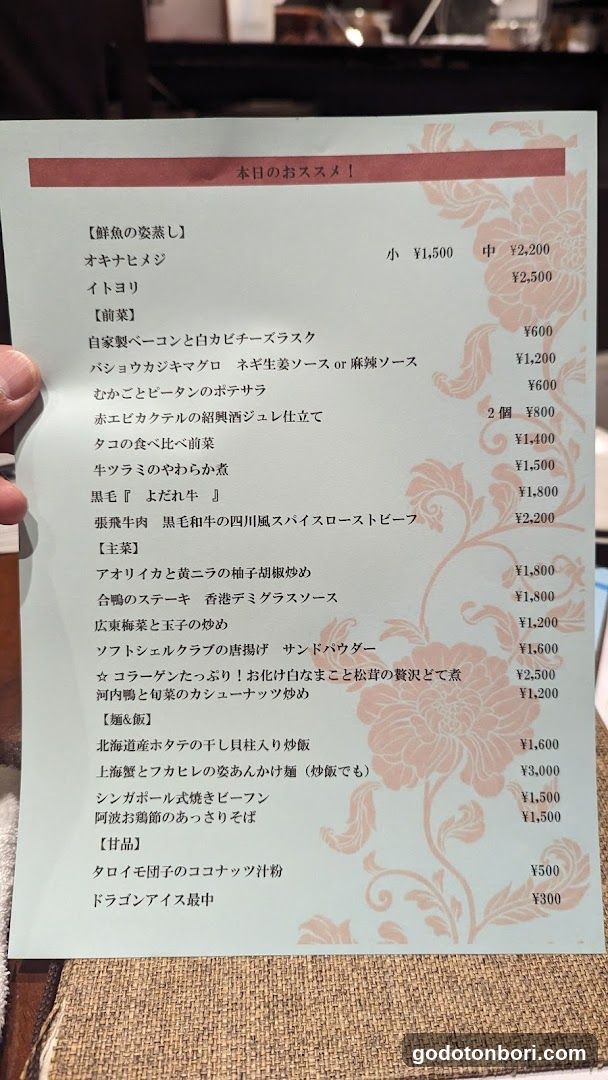 本日のおススメ！
【鮮魚の姿蒸し】
オキナヒメジ 小 ¥1,500 中 ¥2,200
イトヨリ ¥2,500
【前菜】
自家製ベーコンと白カビチーズラスク ¥600
バショウカジキマグロ ネギ生姜ソース or 麻辣ソース ¥1,200
むかごとピータンのポテサラ ¥600
赤エビカクテルの紹興酒ジュレ仕立て 2個 ¥800
タコの食べ比べ前菜 ¥1,400
牛ツラミのやわらか煮 ¥1,500
黒毛『 よだれ牛 』 ¥1,800
張飛牛肉 黒毛和牛の四川風スパイスローストビーフ ¥2,200
【主菜】
アオリイカと黄ニラの柚子胡椒炒め ¥1,800
合鴨のステーキ 香港デミグラスソース ¥1,800
広東梅菜と玉子の炒め ¥1,200
ソフトシェルクラブの唐揚げ サンドパウダー ¥1,600
☆ コラーゲンたっぷり！お化け白なまこと松茸の贅沢どて煮 ¥2,500
河内鴨と旬菜のカシューナッツ炒め ¥1,200
【麺&飯】
北海道産ホタテの干し貝柱入り炒飯 ¥1,600
上海蟹とフカヒレの姿あんかけ麺（炒飯でも） ¥3,000
シンガポール式焼きビーフン ¥1,500
阿波お鶏節のあっさりそば ¥1,500
【甘品】
タロイモ団子のココナッツ汁粉 ¥500
ドラゴンアイス最中 ¥300
godotonbori.com